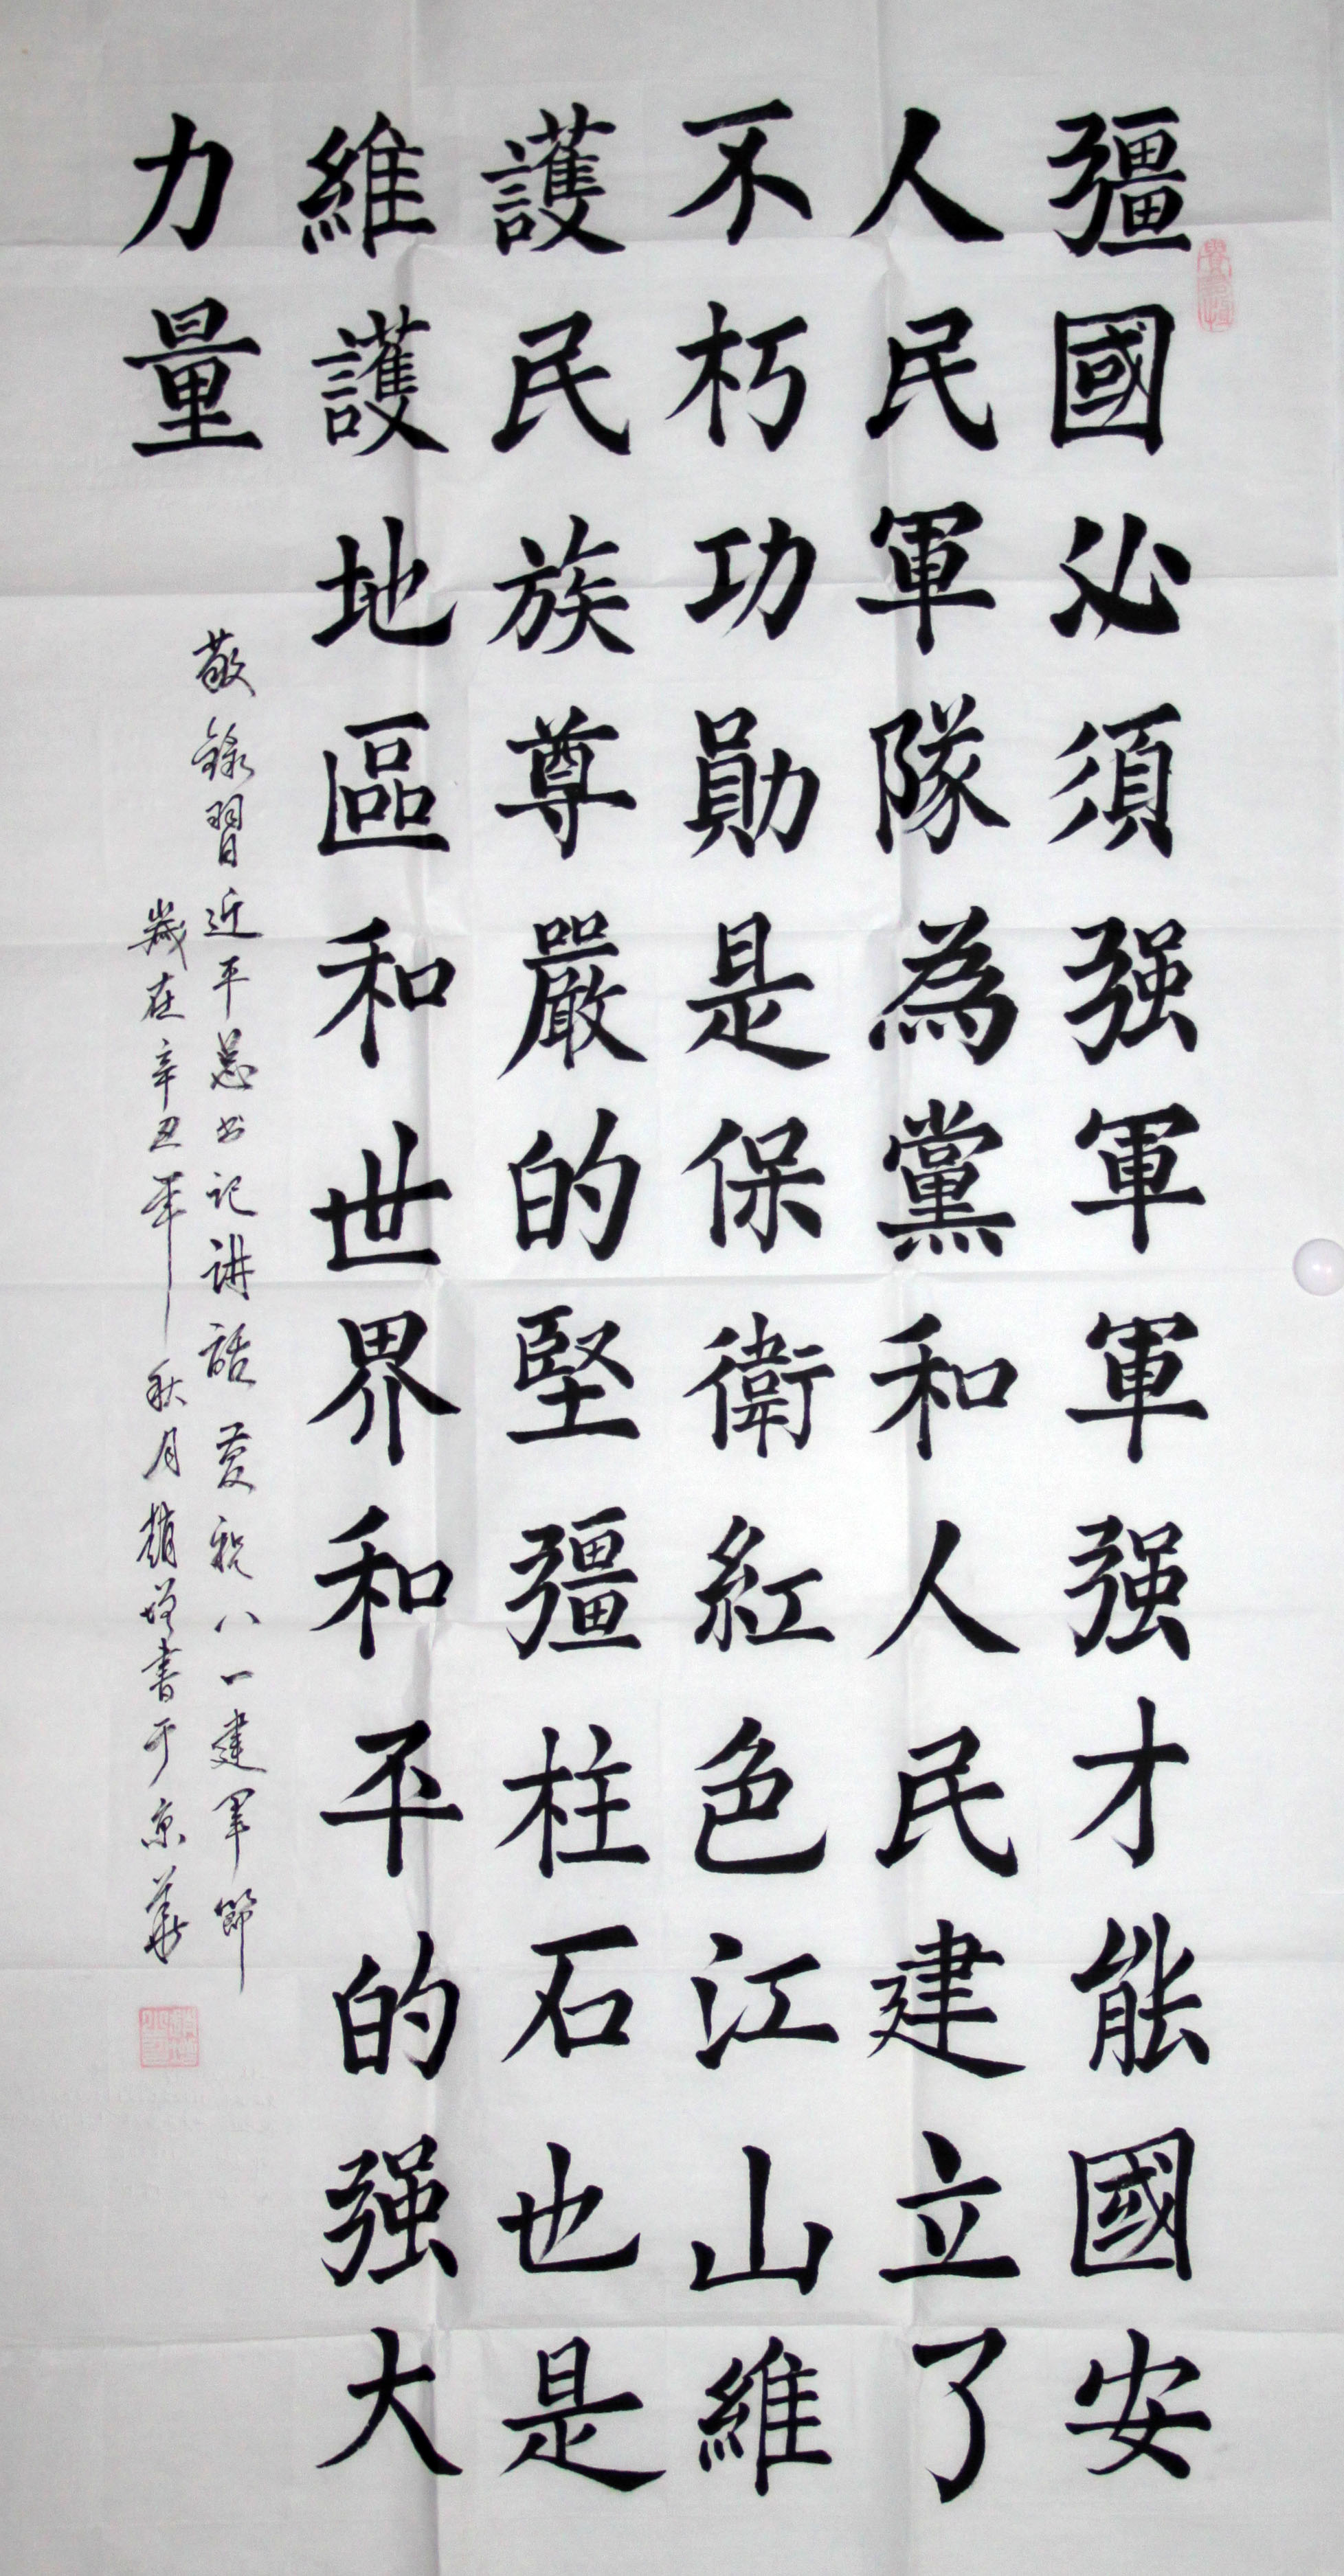 彊國必須强軍軍强才能國安
人民軍隊為黨和人民建立了
不朽功勛是保衛紅色江山維
護民族尊嚴的堅彊柱石也是
維護地區和世界和平的强大
力量
敬錄習近平總书記講話慶祝八一建軍節
歲在辛丑年秋月趙增書于京華